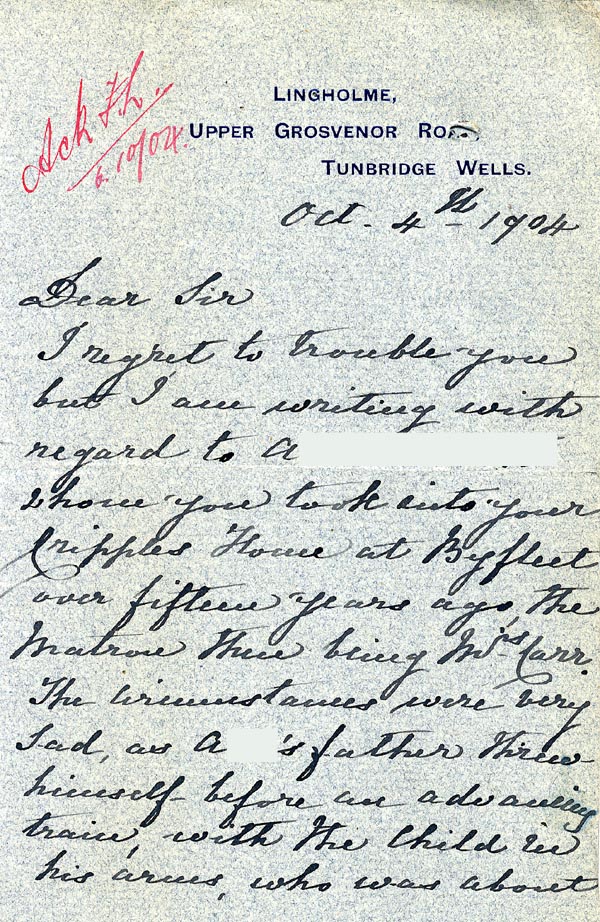 Ack
6.10/04.
LINGHOLME,
UPPER GROSVENOR ROAD,
TUNBRIDGE WELLS.
Oct. 4th 1904
Dear Sir
I regret to trouble you
but I am writing with
regard to A
whom you took into your
Cripples Home at Byfleet
over fifteen years ago, the
Matron then being Mrs Carr.
The circumstances were very
sad, as A 's father threw
himself before an advancing
train, with the child in
his arms, who was about